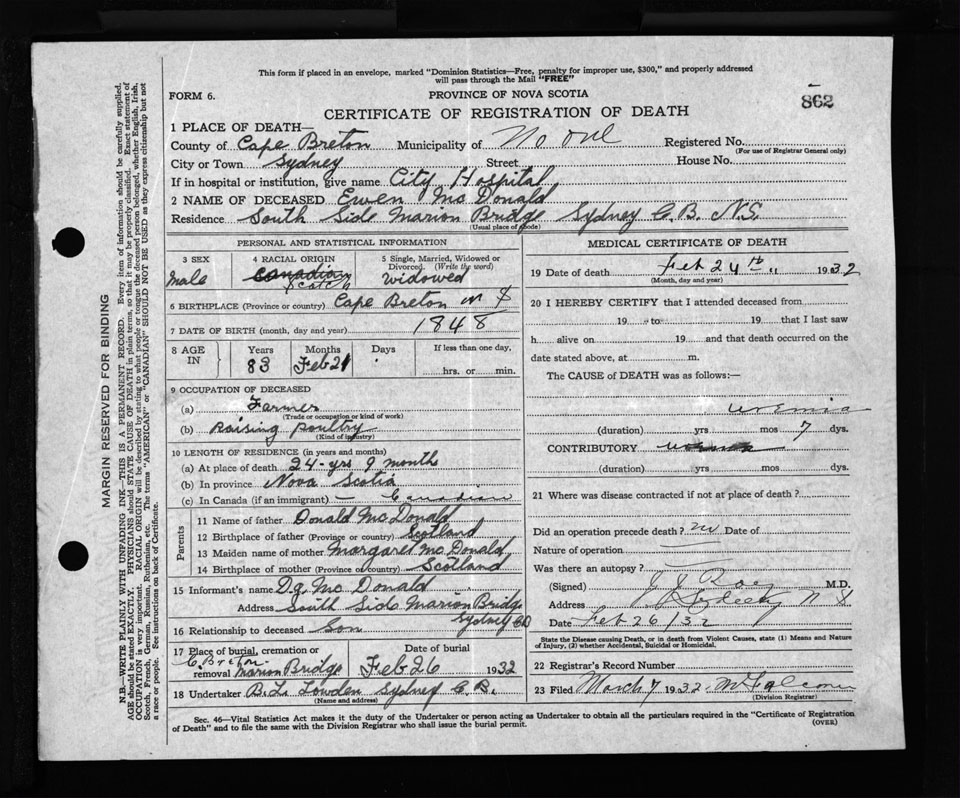 This form if placed in an envelope, marked "Dominion Statistics—Free, penalty for improper use, $300," and properly addressed
will pass through the Mail "FREE"
FORM 6.
PROVINCE OF NOVA SCOTIA
862
CERTIFICATE OF REGISTRATION OF DEATH
1 PLACE OF DEATH—
County of Cape Breton Municipality of No one Registered No.
(For use of Registrar General only)
City or Town Sydney Street House No.
If in hospital or institution, give name City Hospital
2 NAME OF DECEASED Ewen Mc Donald
Residence South Side Marion Bridge Sydney C.B. N.S.
(Usual place of abode)
PERSONAL AND STATISTICAL INFORMATION
3 SEX
male
4 RACIAL ORIGIN
Canadian
Scotch
5 Single, Married, Widowed or
Divorced. (Write the word)
widowed
6 BIRTHPLACE (Province or country) Cape Breton N S
7 DATE OF BIRTH (month, day and year) 1848
8 AGE IN
Years Months Days If less than one day,
83 Feb 21
hrs. or min.
9 OCCUPATION OF DECEASED
(a) Farmer
(Trade or occupation or kind of work)
(b) Raising poultry
(Kind of industry)
10 LENGTH OF RESIDENCE (in years and months)
(a) At place of death 24-yrs 9 month
(b) In province Nova Scotia
(c) In Canada (if an immigrant) — Canadian
Parents
11 Name of father Donald Mc Donald
12 Birthplace of father (Province or country) Scotland
13 Maiden name of mother Margaret Mc Donald
14 Birthplace of mother (Province or country) Scotland
15 Informant's name D. Mc Donald
Address South Side Marion Bridge
Sydney CB
16 Relationship to deceased Son
17 Place of burial, cremation or Date of burial
C. Breton
removal Marion Bridge Feb 26 1932
18 Undertaker B.L. Lowden Sydney C.B.
(Name and address)
MEDICAL CERTIFICATE OF DEATH
19 Date of death Feb 24th 1932
(Month, day and year)
20 I HEREBY CERTIFY that I attended deceased from
19 to 19 that I last saw
h alive on 19 and that death occurred on the
date stated above, at m.
The CAUSE of DEATH was as follows:—
uremia
(duration) yrs mos 7 dys.
CONTRIBUTORY
(duration) yrs mos dys.
21 Where was disease contracted if not at place of death?
Did an operation precede death? no Date of
Nature of operation
Was there an autopsy?
(Signed) J J Roy M.D.
Address Sydney N S
Date Feb 26/32
State the Disease causing Death, or in death from Violent Causes, state (1) Means and Nature
of Injury, (2) whether Accidental, Suicidal or Homicidal.
22 Registrar's Record Number
23 Filed March 7 1932
(Division Registrar)
Sec. 46—Vital Statistics Act makes it the duty of the Undertaker or person acting as Undertaker to obtain all the particulars required in the "Certificate of Registration
of Death" and to file the same with the Division Registrar who shall issue the burial permit.
(OVER)
MARGIN RESERVED FOR BINDING
N.B.—WRITE PLAINLY WITH UNFADING INK—THIS IS A PERMANENT RECORD. Every item of information should be carefully supplied.
AGE should be stated EXACTLY. PHYSICIANS should STATE CAUSE OF DEATH in plain terms, so that it may be properly classified. Exact statement of
OCCUPATION is very important. RACIAL ORIGIN will be described by stating to what people or tongue the deceased person belonged, whether English, Irish,
Scotch, French, German, Russian, Ruthenian, etc. The terms "AMERICAN" or "CANADIAN" SHOULD NOT BE USED as they express citizenship but not
a race or people. See instructions on back of Certificate.